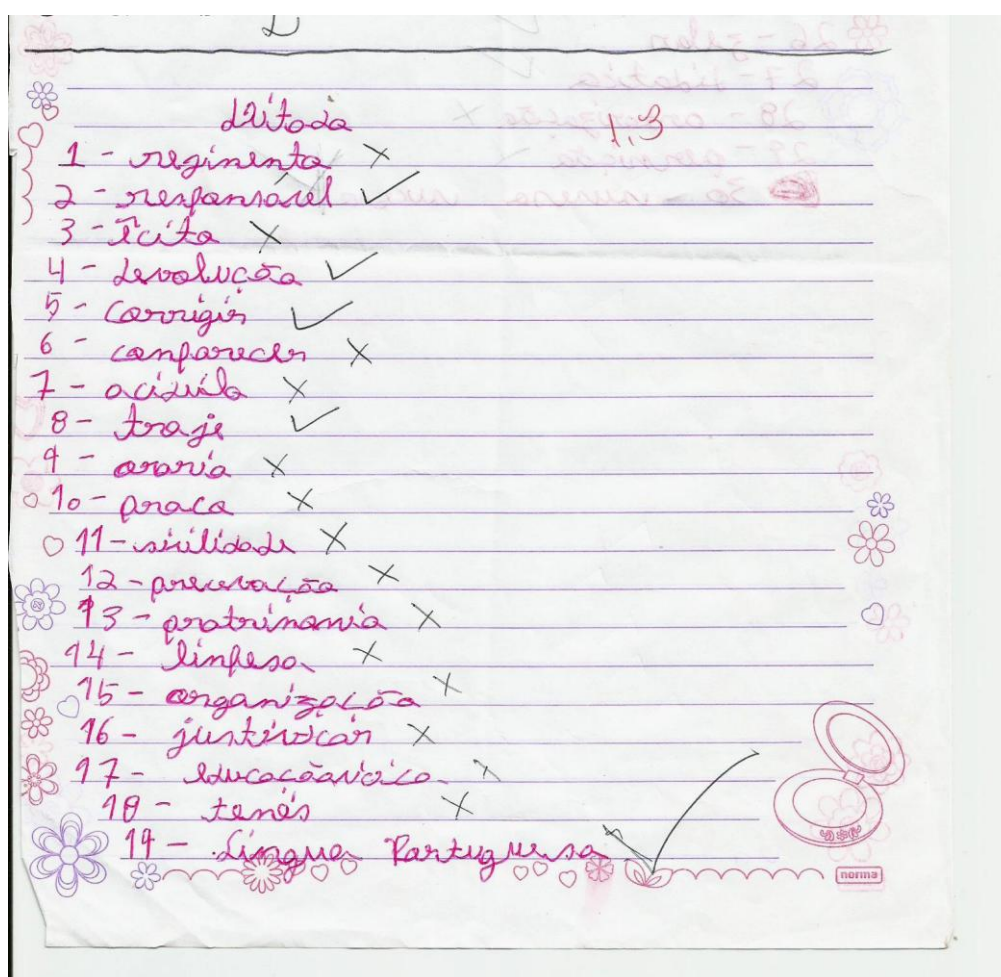 Ditado
1,3
1 - reginenta X
2 - responsável ✓
3 - Êcita X
4 - devolução ✓
5 - Corrigir ✓
6 - conparecer X
7 - acidula X
8 - traje ✓
9 - oraria X
10 - praca X
11 - sivilidade X
12 - precevação X
13 - pratrimania X
14 - linpesa X
15 - organização X
16 - justivicar X
17 - educacão X
18 - tenás X
19 - Língua Portuguesa
norma